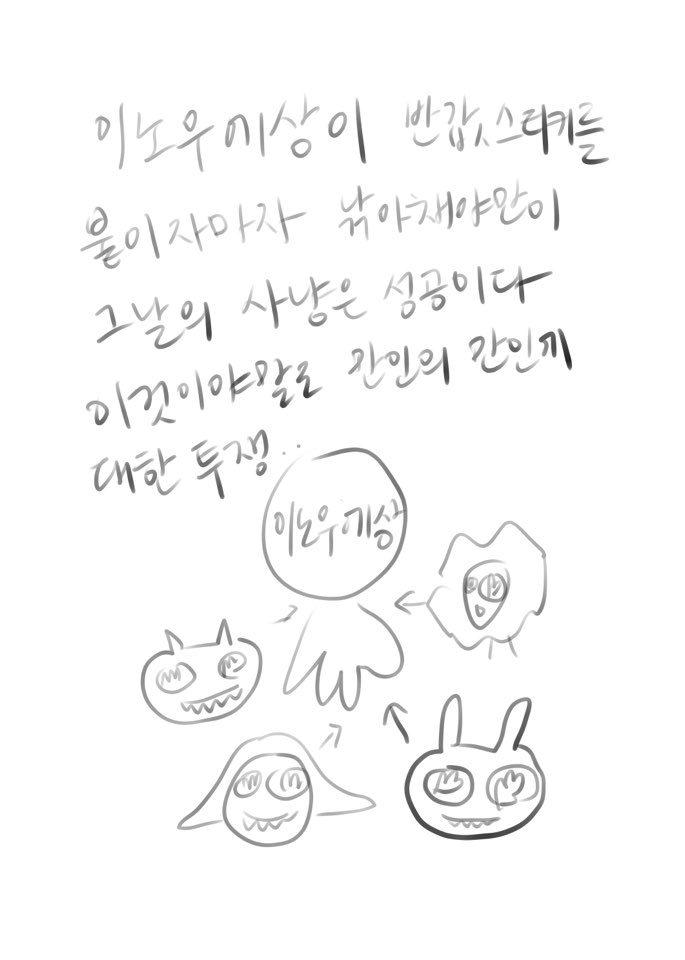 이노우에상이 반값 스티커를
붙이자마자 낚아채야만이
그날의 사냥은 성공이다
이것이야말로 인의 인에
대한 투쟁..
이노우에상